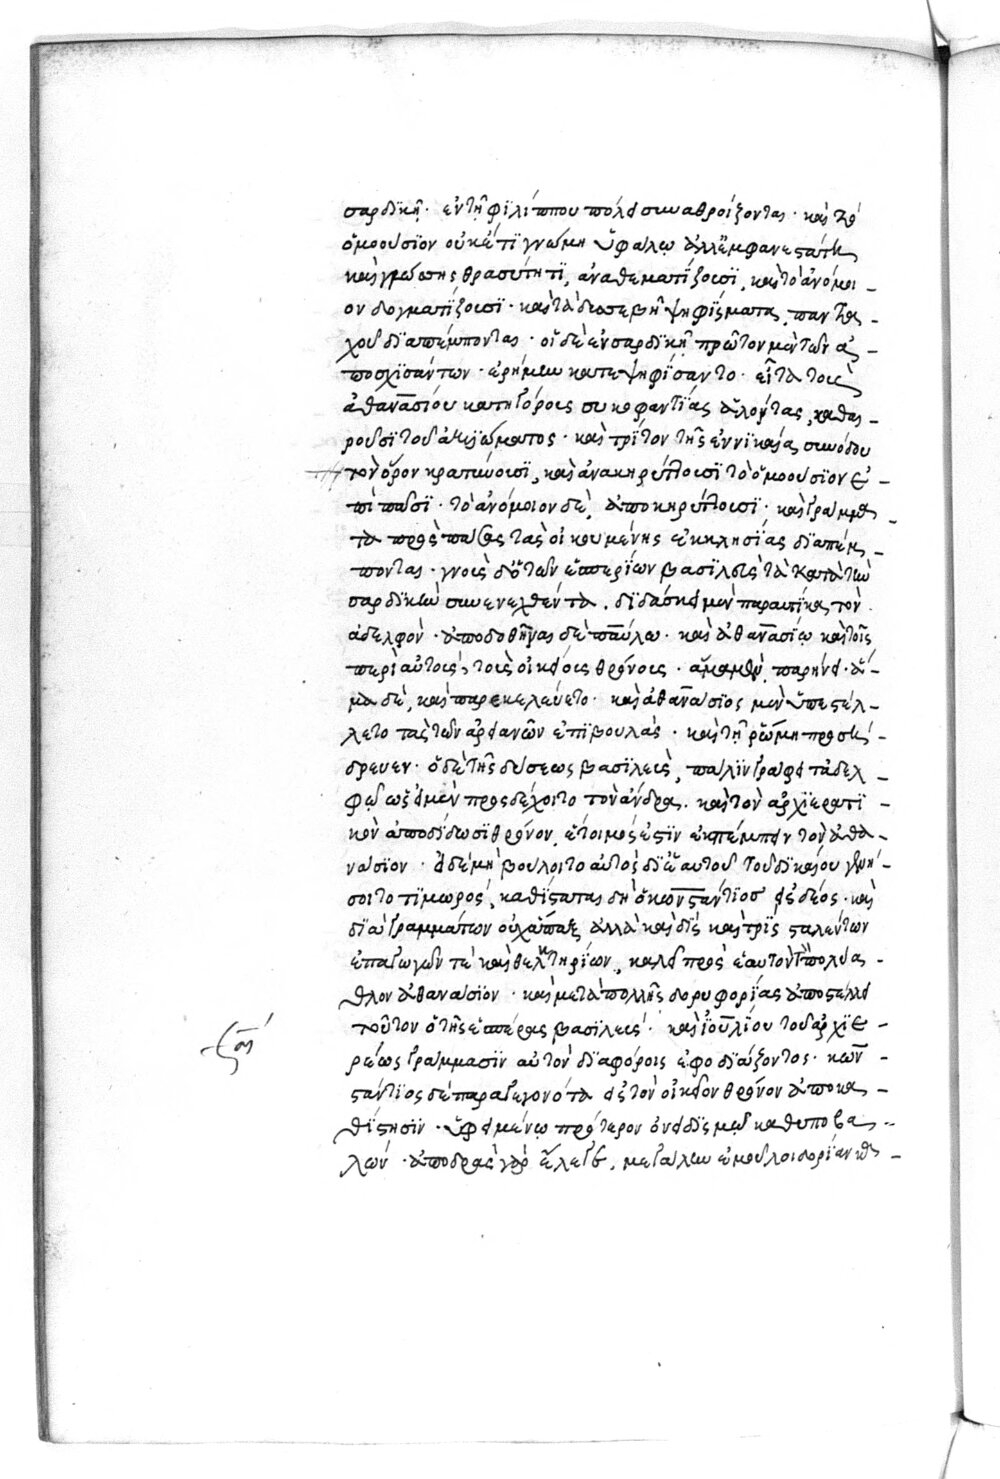 σαρδικῇ· ἐν τῇ φιλίππου πόλει συναθροίζονται· καὶ τὸ
ὁμοούσιον οὐκέτι γνώμῃ ὑφάλῳ ἀλλ' ἐμφανεστάτῃ
καὶ γλώττης θρασύτητι, ἀναθεματίζουσι, καὶ τὸ ἀνόμοι-
ον δογματίζουσι· καὶ τὰ δυσσεβῆ ψηφίσματα, πανταχ-
χοῦ διαπέμπονται· οἱ δὲ ἐν σαρδικῇ πρῶτον μὲν τῶν ἀ-
ποσχισάντων· ἐρήμην κατεψηφίσαντο· εἶτα τοὺς
ἀθανασίου κατηγόρους συκοφαντίας ἑλόντας, καθαι-
ροῦσι τοῦ ἀξιώματος· καὶ τρίτον τῆς ἐν νικαίᾳ συνόδου
τὸν ὅρον κρατύνουσι, καὶ ἀνακηρύττουσι τὸ ὁμοούσιον ἐ-
πὶ πᾶσι· τὸ ἀνόμοιον δὲ, ἀποκηρύττουσι· καὶ γράμμα-
τα πρὸς πάσας τὰς οἰκουμένης ἐκκλησίας διαπέμ-
πονται· γνοὺς δὲ ὁ τῶν ἑσπερίων βασιλεὺς τὰ κατὰ τὴν
σαρδικὴν συνενεχθέντα, διδάσκει μὲν παραυτίκα τὸν
ἀδελφὸν· ἀποδοθῆναι δὲ παύλῳ· καὶ ἀθανασίῳ καὶ τοῖς
περὶ αὐτοὺς, τοὺς οἰκείους θρόνους· ἅμα μὲν παρῄνει· ἅ-
μα δὲ, καὶ παρεκελεύετο· καὶ ἀθανάσιος μὲν ὑπεστέλ-
λετο τὰς τῶν ἀρειανῶν ἐπιβουλάς· καὶ τῇ ῥώμῃ προσή-
δρευεν· ὁ δὲ τῆς δύσεως βασιλεὺς, πάλιν γράφει τἀδελ-
φῷ ὡς εἰ μὲν προσδέχοιτο τὸν ἄνδρα, καὶ τὸν ἀρχιερατι-
κὸν ἀποδίδωσι θρόνον, ἕτοιμός ἐστιν ἐκπέμπειν τὸν ἀθα-
νάσιον· εἰ δὲ μὴ βούλοιτο αὐτὸς δι' ἑαυτοῦ τοῦ δικαίου γενή-
σοιτο τιμωρός, καθίσταται δὴ ὁ κωνστάντιος εἰς δέος· καὶ
διὰ γραμμάτων οὐχ ἅπαξ ἀλλὰ καὶ δὶς καὶ τρὶς σταλέντων
ἐπαγωγῶν τε καὶ θελκτηρίων, καλεῖ πρὸς ἑαυτὸν τὸν πολύα-
θλον ἀθανάσιον· καὶ μετὰ πολλῆς δορυφορίας ἀποστέλλει
τοῦτον ὁ τῆς ἑσπέρας βασιλεύς· καὶ ἰουλίου τοῦ ἀρχιε-
ρέως γράμμασιν αὐτὸν διαφόροις ἐφοδιάζοντος· κων-
στάντιος δὲ παραγεγονότα εἰς τὸν οἰκεῖον θρόνον ἀποκα-
θίστησιν· ὑφειμένῳ πρότερον ὀνειδισμῷ καθυποβα-
λών· ἀποδρὰς γὰρ ἔλεγε, μεγάλην ἐμοῦ λοιδορίαν κα-